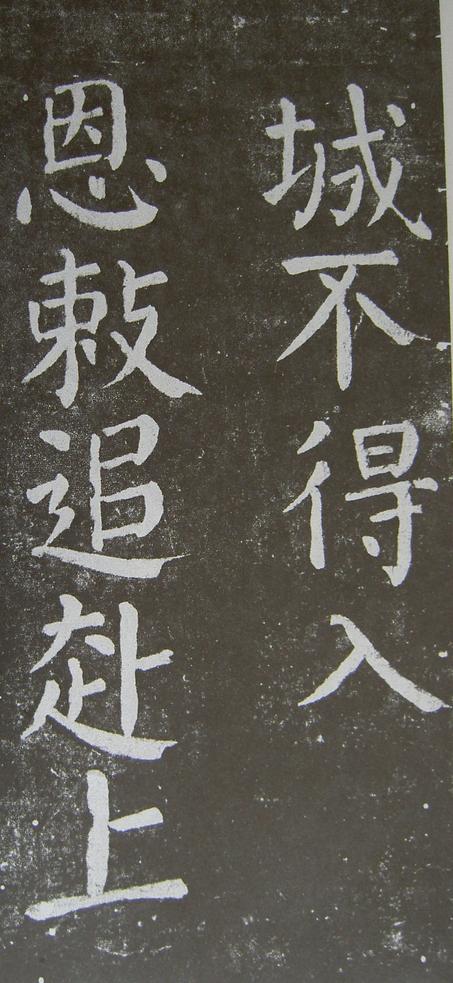 城不得入
恩敕追赴上